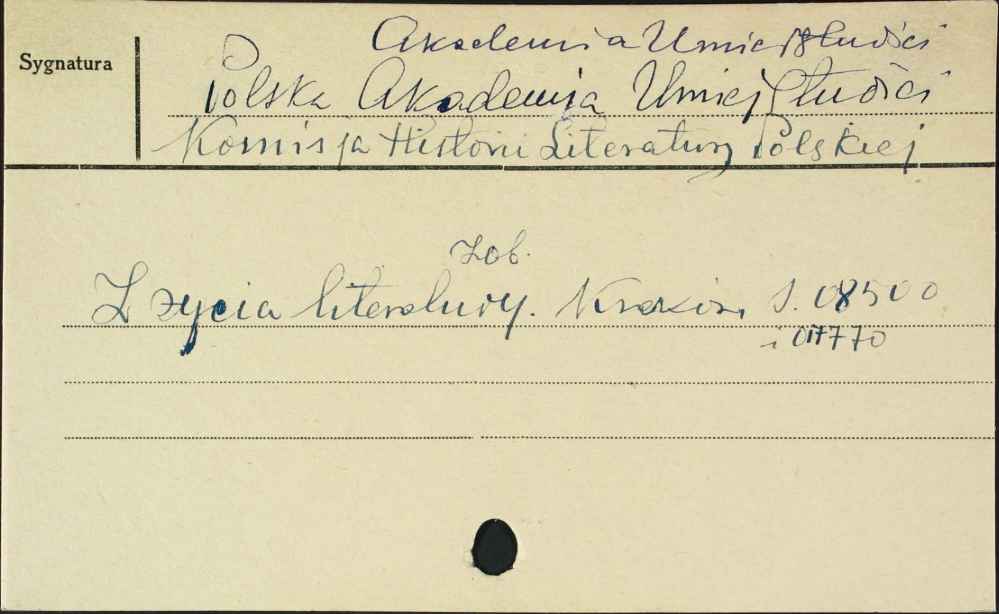 Akademia Umiejętności
Sygnatura
Polska Akademia Umiejętności
Komisja Historii Literatury Polskiej
Zob.
Z życia literatury. Kraków. S. 08500
i 017770